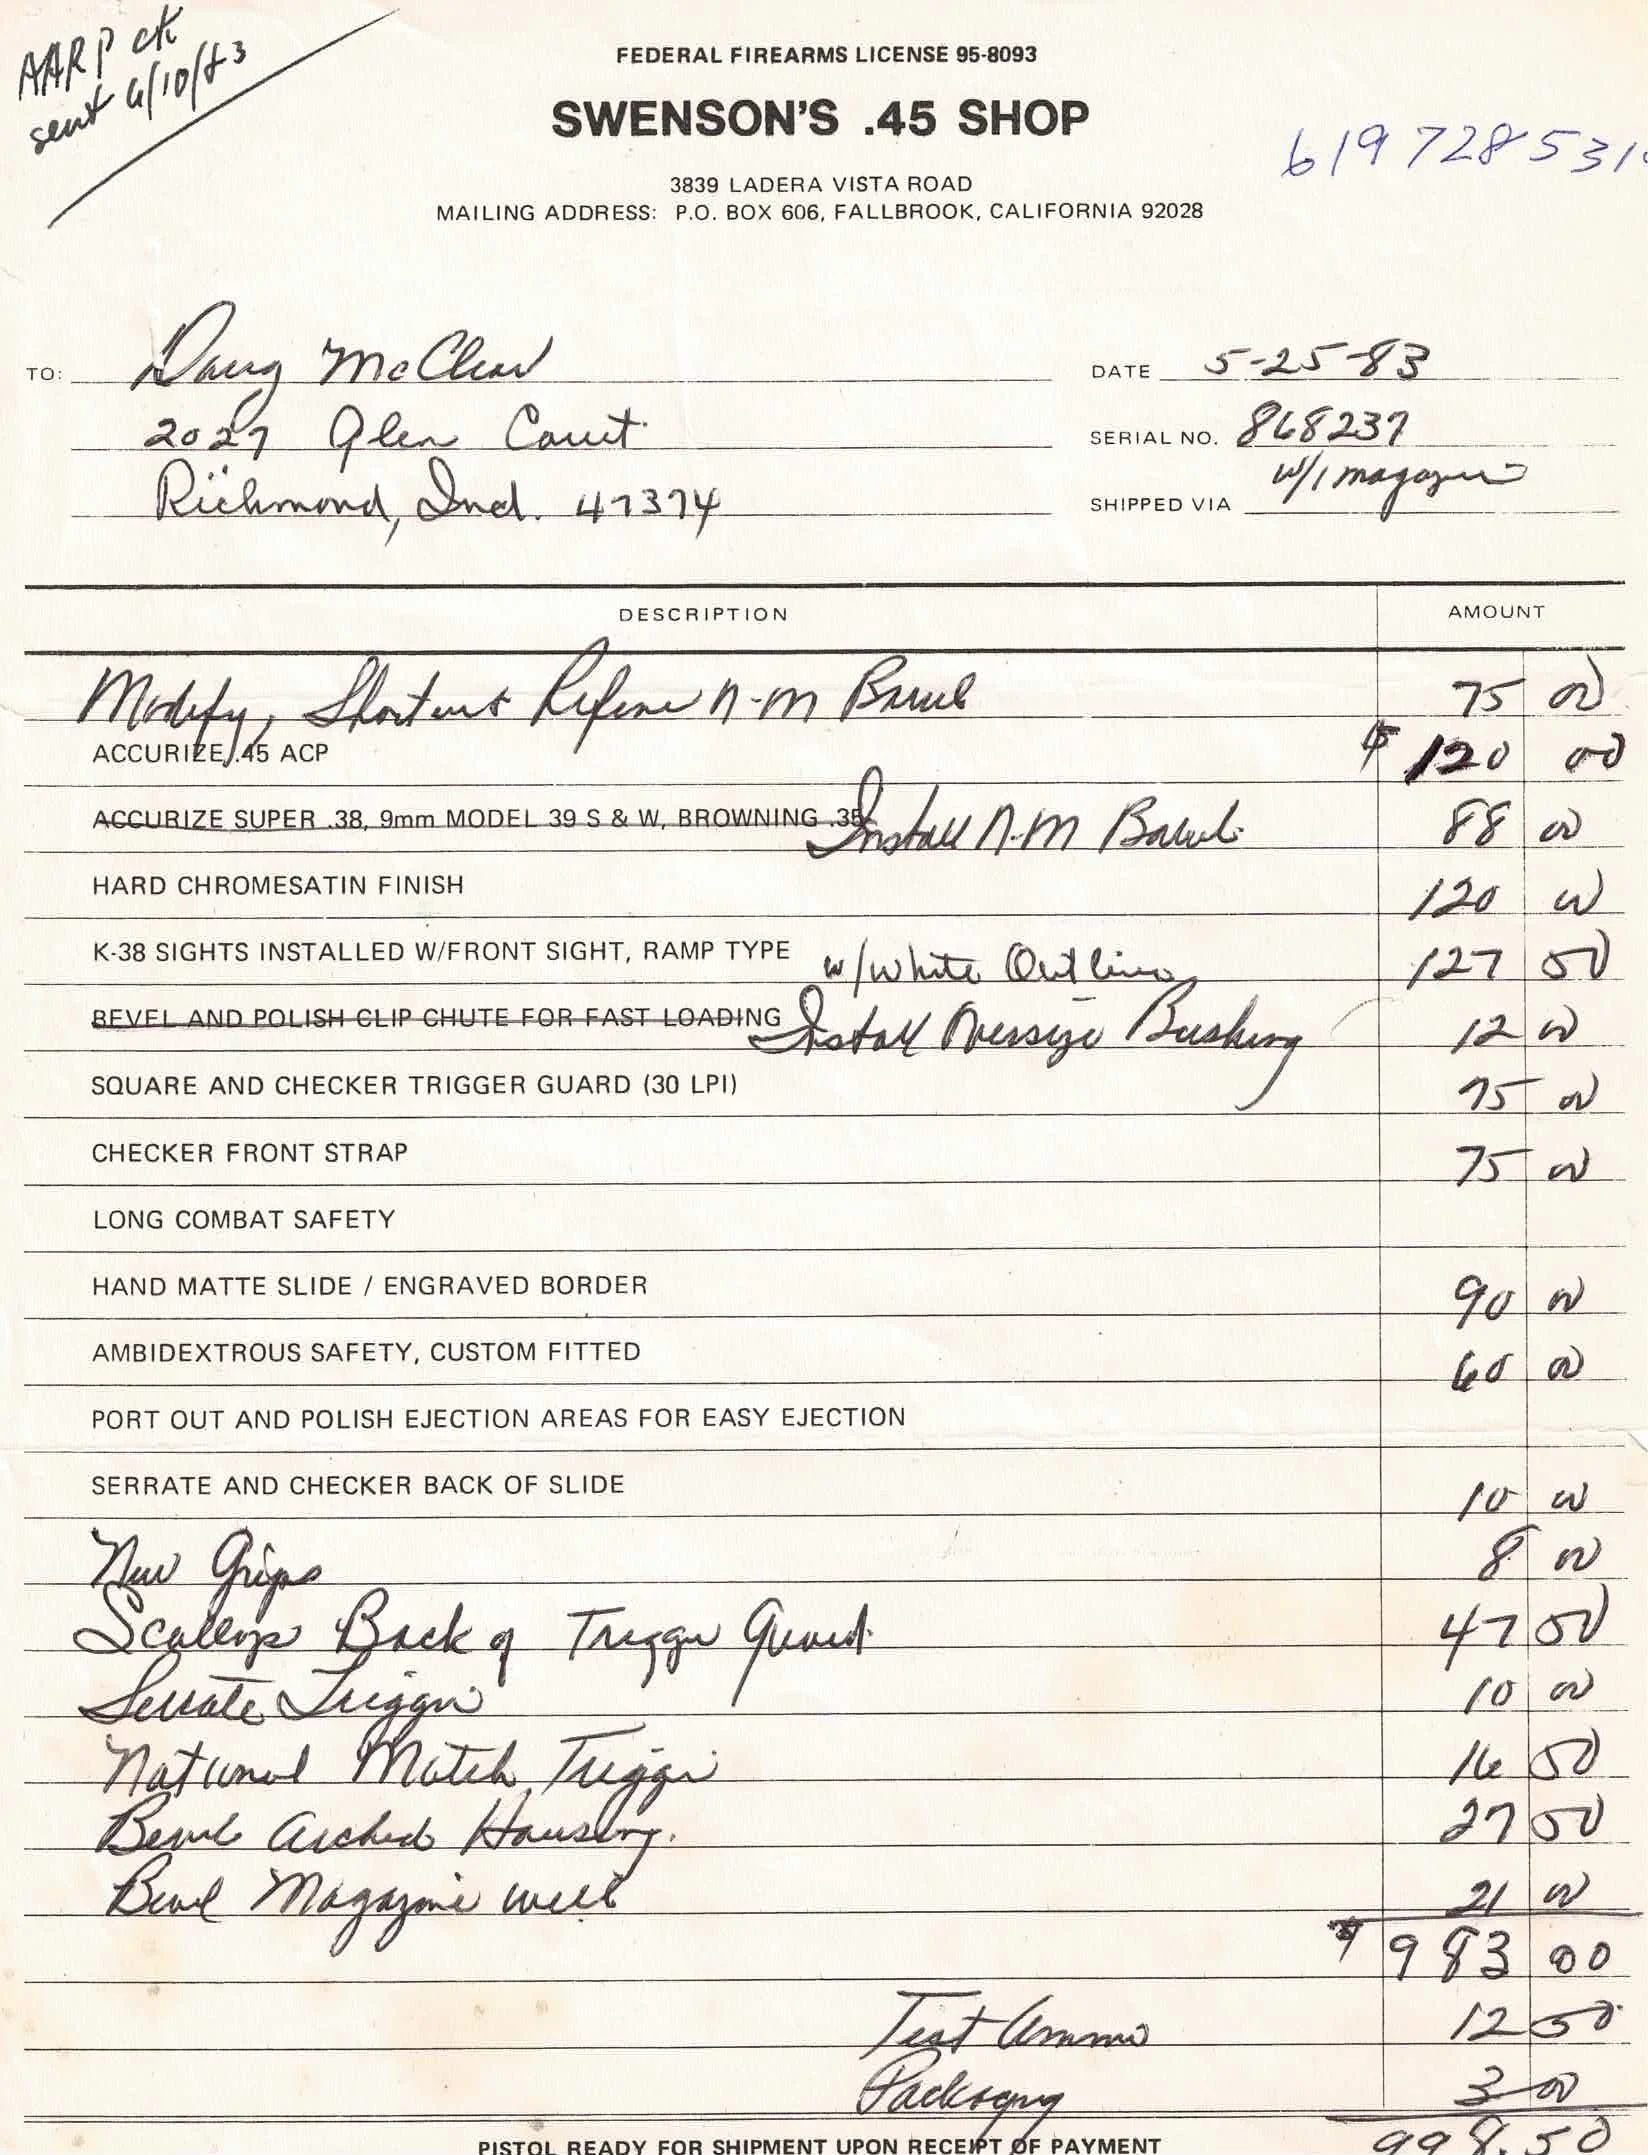 AARP ck
sent 6/10/83
FEDERAL FIREARMS LICENSE 95-8093
SWENSON'S .45 SHOP
619 728 531
3839 LADERA VISTA ROAD
MAILING ADDRESS: P.O. BOX 606, FALLBROOK, CALIFORNIA 92028
TO: Doug McClear DATE 5-25-83
2027 Glen Court SERIAL NO. 868237
Richmond, Ind. 47374 SHIPPED VIA w/1 magazine
DESCRIPTION AMOUNT
Modify, Shorten & Refine N-M Barrel 75 00
ACCURIZE, .45 ACP $ 120 00
ACCURIZE SUPER .38, 9mm MODEL 39 S & W, BROWNING .35 Install N.M Barrel 88 00
HARD CHROMESATIN FINISH 120 00
K-38 SIGHTS INSTALLED W/FRONT SIGHT, RAMP TYPE w/White Outline 127 50
BEVEL AND POLISH CLIP CHUTE FOR FAST LOADING Install Oversize Bushing 12 00
SQUARE AND CHECKER TRIGGER GUARD (30 LPI) 75 00
CHECKER FRONT STRAP 75 00
LONG COMBAT SAFETY
HAND MATTE SLIDE / ENGRAVED BORDER 90 00
AMBIDEXTROUS SAFETY, CUSTOM FITTED 60 00
PORT OUT AND POLISH EJECTION AREAS FOR EASY EJECTION
SERRATE AND CHECKER BACK OF SLIDE 10 00
New Grips 8 00
Scallop Back of Trigger Guard 47 50
Serrate Trigger 10 00
National Match Trigger 16 50
Bevel Arched Housing. 27 50
Bevel Magazine well 21 00
$ 983 00
Test Ammo 12 50
Packaging 3 00
PISTOL READY FOR SHIPMENT UPON RECEIPT OF PAYMENT 998.50